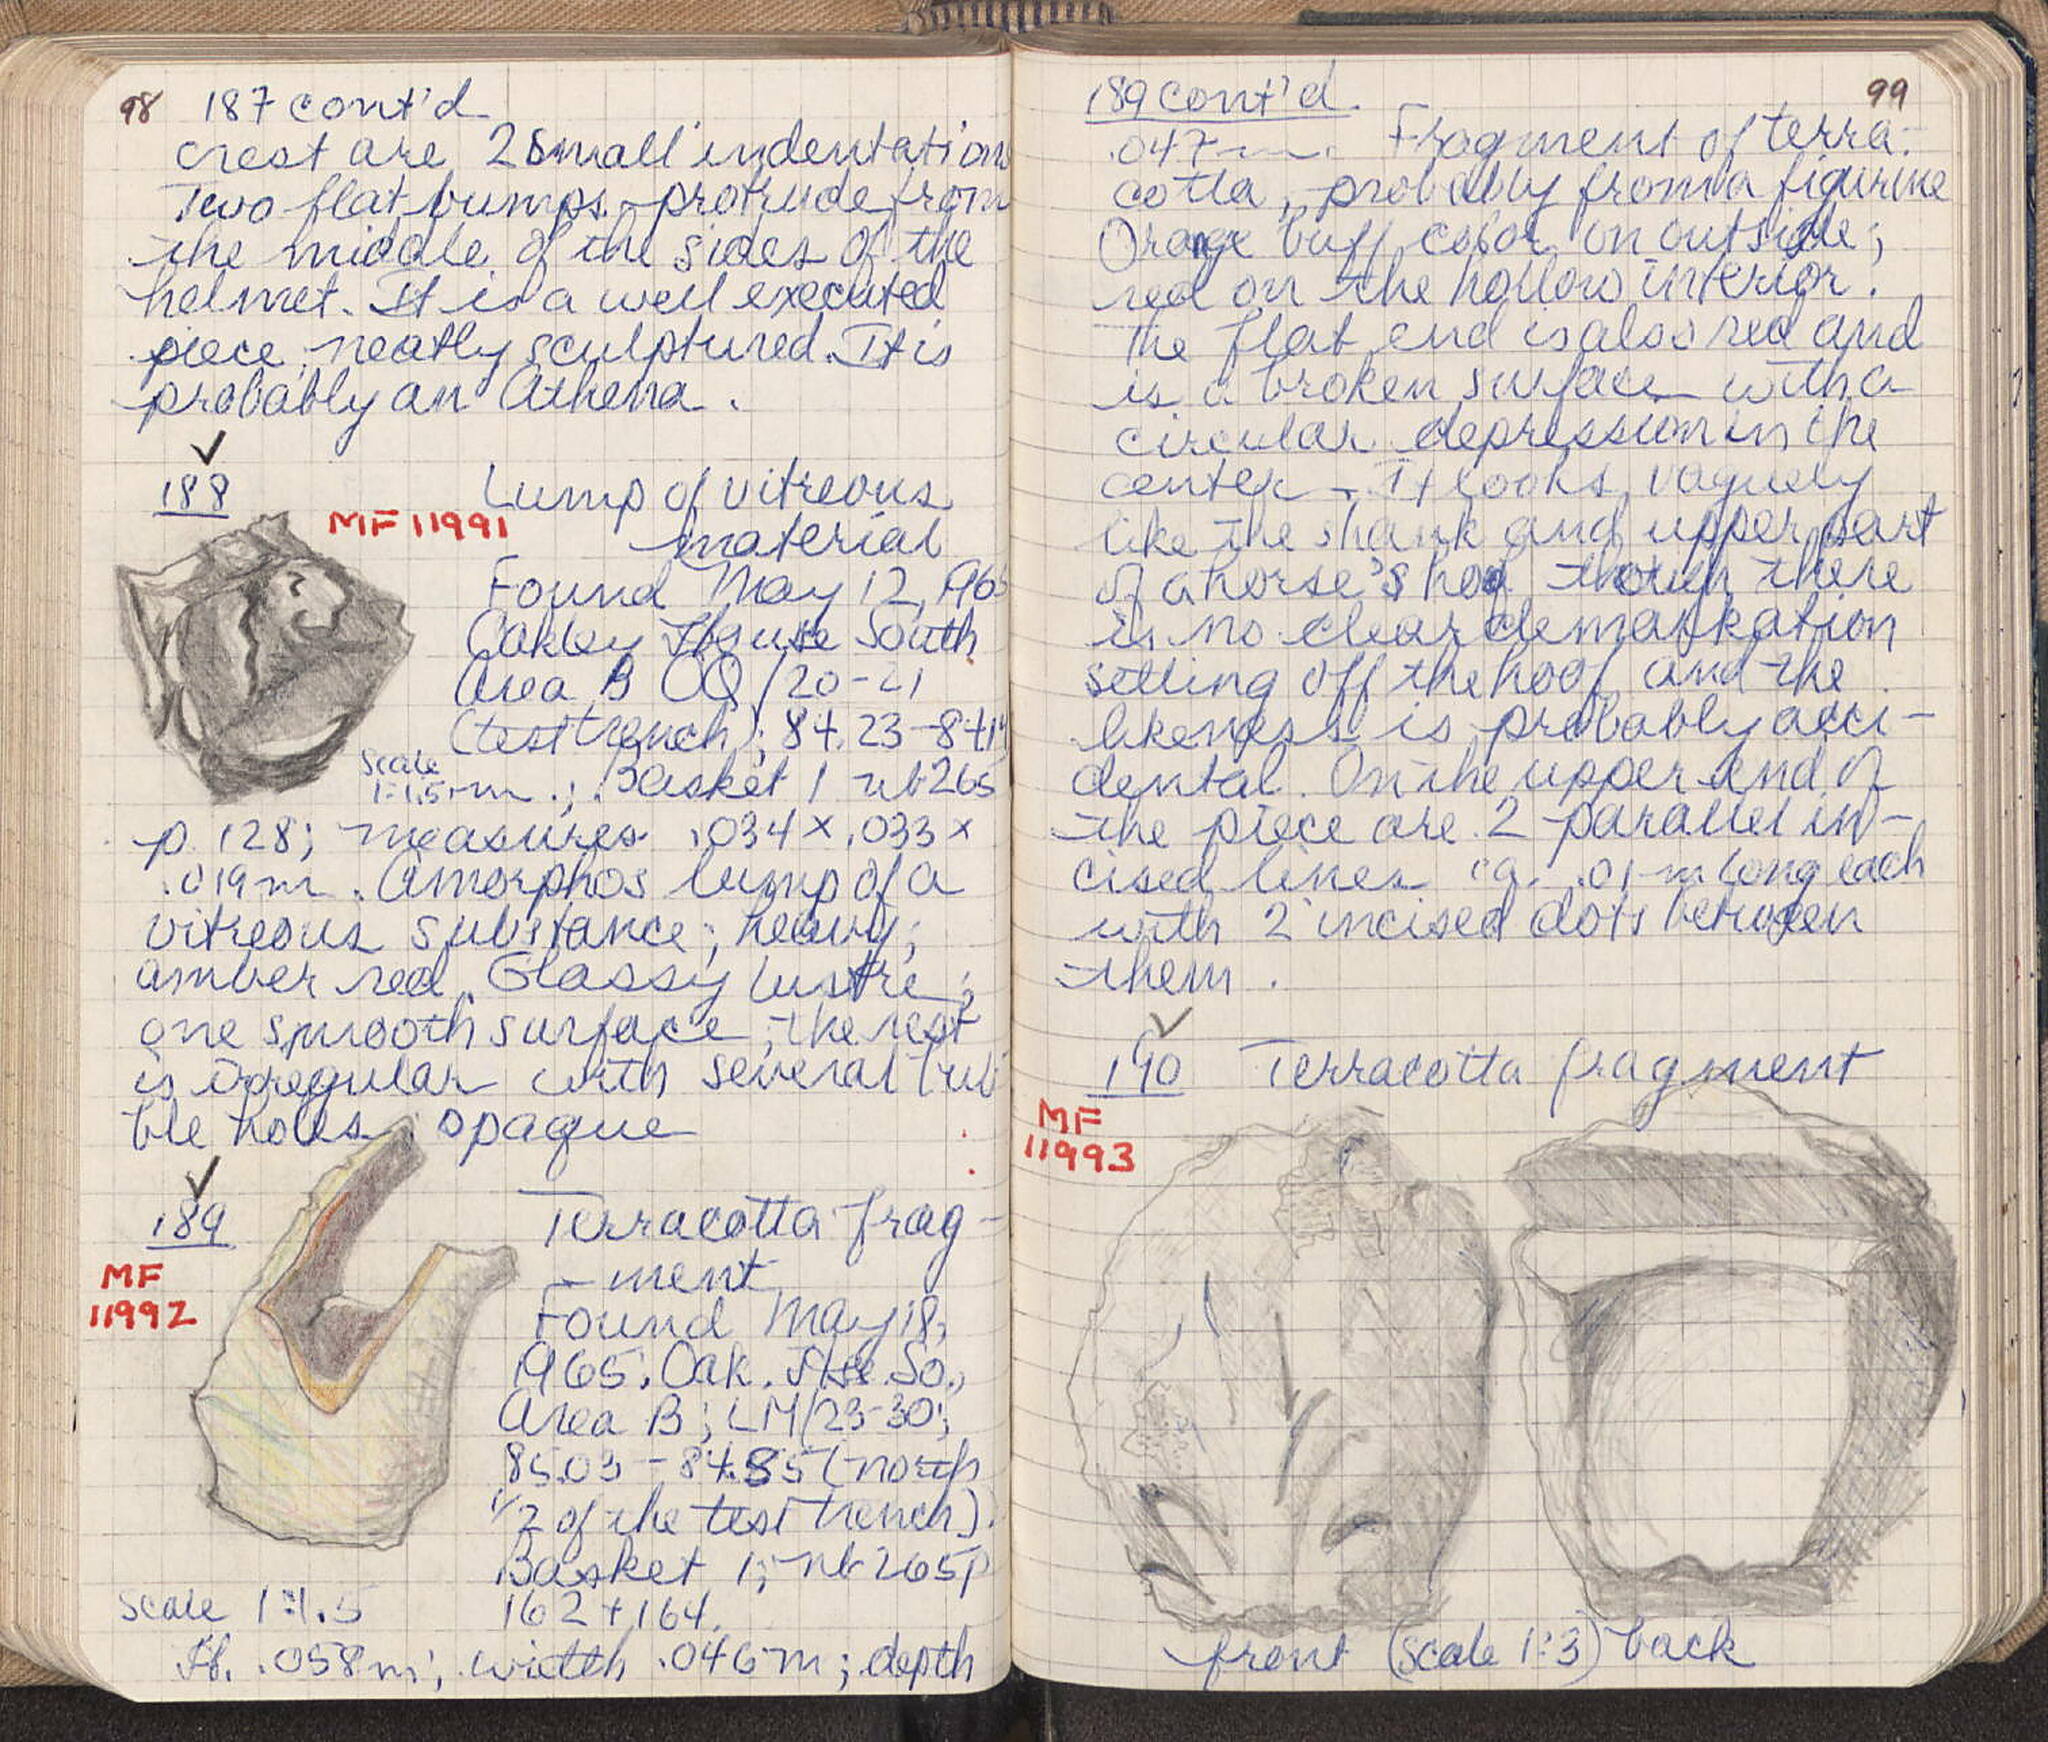 98 187 cont'd
crest are 2 small indentations
Two flat bumps protrude from
the middle of the sides of the
helmet. It is a well executed
piece, neatly sculptured. It is
probably an Athena.
✓
188
MF 11991
Lump of vitreous
material
Found May 12, 1965
Oakley House South
Area B OQ/20-21
(test trench); 84.23-84.14
Scale
1:1.5
m.; Basket 1 nb 265
p. 128; measures .034 x .033 x
.019m. Amorphos lump of a
vitreous substance; heavy;
amber red. Glassy lustre;
one smooth surface, the rest
is irregular with several bub
ble holes; opaque
✓
189
MF
11992
Terracotta frag-
ment
Found May 18,
1965. Oak. Hse So.,
Area B; LM/23-30;
85.03-84.85 (north
1/2 of the test trench).
Basket 1; nb 265 p
162 + 164.
Scale 1:1.5
H. .058m; width .046m; depth
189 cont'd. 99
.047m. Fragment of terra-
cotta, probably from a figurine
Orange buff color on outside;
red on the hollow interior.
The flat end is also red and
is a broken surface with a
circular depression in the
center. It looks vaguely
like the shank and upper part
of a horse's hoof though there
is no clear demarkation
setting off the hoof and the
likeness is probably acci-
dental. On the upper end of
the piece are 2 parallel in-
cised lines ca. .01m long each
with 2 incised dots between
them.
✓
190 Terracotta fragment
MF
11993
front (scale 1:3) back